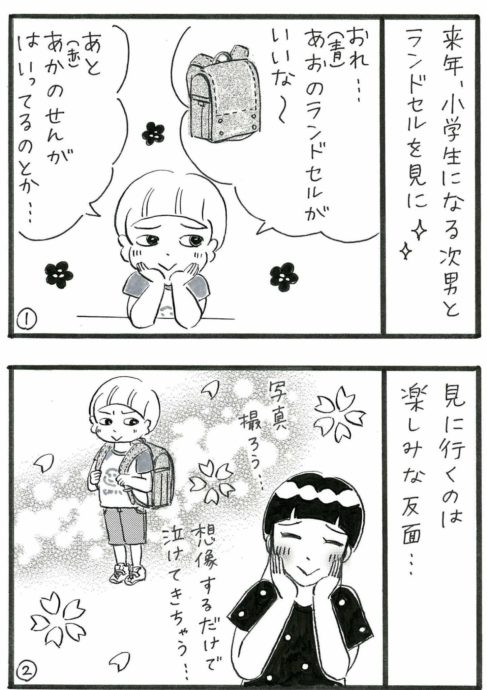 来年、小学生になる次男と
ランドセルを見に
おれ…
あおのランドセルが
(青)
いいな〜
あと
あかのせんが
(赤)
はいってるのとか…
①
見に行くのは
楽しみな反面…
写真
撮ろう…
想像するだけで
泣けてきちゃう…
②